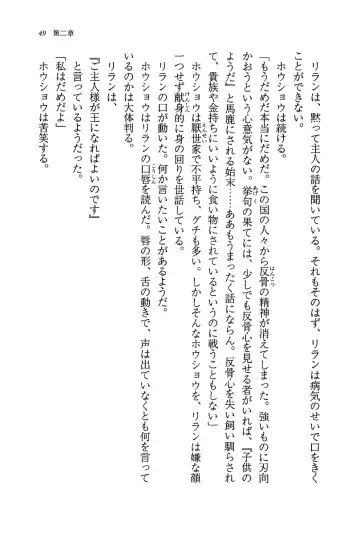 49 第二章
リランは、黙って主人の話を聞いている。それもそのはず、リランは病気のせいで口をきく
ことができない。
ホウショウは続ける。
「もうだめだ本当にだめだ。この国の人々から反骨の精神が消えてしまった。強いものに刃向
かおうという心意気がない。挙句の果てには、少しでも反骨心を見せる者がいれば、『子供の
ようだ』と馬鹿にされる始末……ああもうまったく話にならん。反骨心を失い飼い馴らされ
て、貴族や金持ちにいいように食い物にされているというのに戦うこともしない」
ホウショウは厭世家で不平持ち、グチも多い。しかしそんなホウショウを、リランは嫌な顔
一つせず献身的に身の回りを世話している。
リランの口が動いた。何か言いたいことがあるようだ。
ホウショウはリランの口唇を読んだ。唇の形、舌の動きで、声は出ていなくとも何を言って
いるのかは大体判る。
リランは、
『ご主人様が王になればよいのです』
と言っているようだった。
「私はだめだよ」
ホウショウは苦笑する。